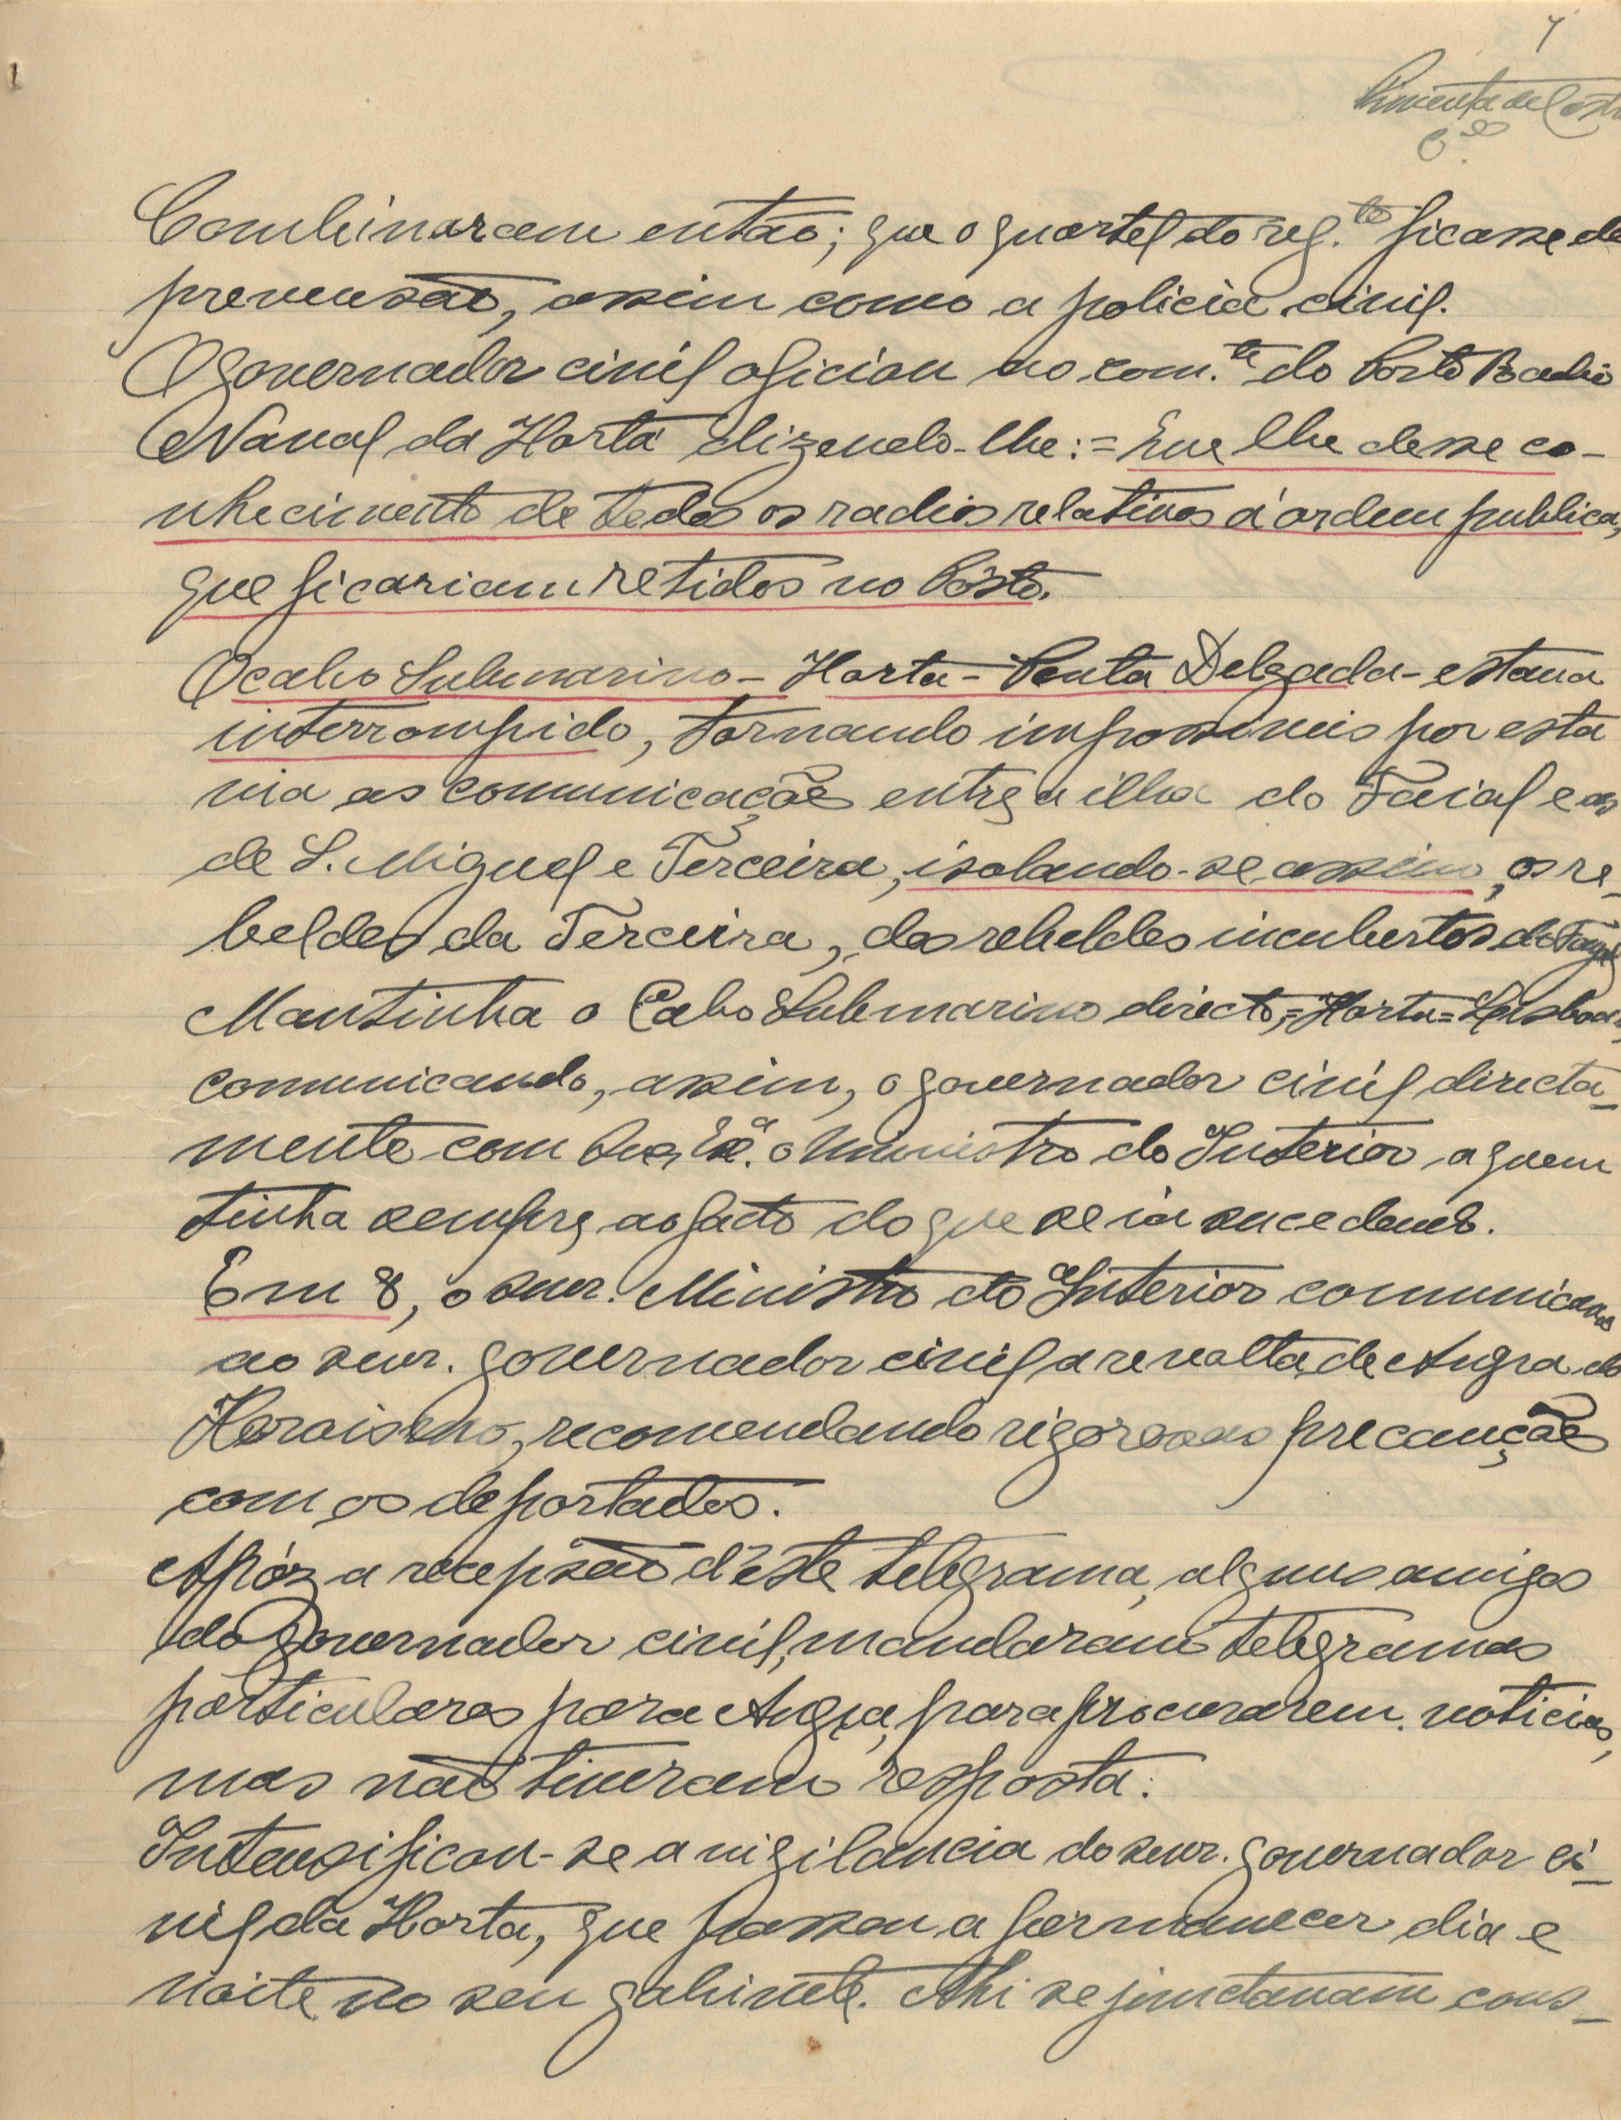 7
Pimenta de Castro
C.el
Combinaram então; que o quartel do reg.to ficasse de
prevensão, assim como a policia civil.
O governador civil oficiou ao com.te do Posto Radio
Naval da Horta dizendo-lhe:= Que lhe desse co-
nhecimento de todos os radios relativos á ordem publica,
que ficariam retidos no Posto.
O cabo Submarino - Horta - Ponta Delgada - estava
interrompido, tornando impossiveis por esta
via as comunicações entre a ilha do Faial e as
de S. Miguel e Terceira, isolando-se assim, os re-
beldes da Terceira, dos rebeldes incubertos do Fayal
Mantinha o Cabo Submarino directo,=Horta=Lisboa,
comunicando, assim, o governador civil directa-
mente com Sua Ex.a o Ministro do Interior, a quem
tinha sempre ao facto do que se ia sucedendo.
Em 8, o snr. Ministro do Interior comunicava
ao snr. governador civil a revolta de Angra do
Heroismo, recomendando rigorosas precauções
com os deportados.
Apóz a recepsão d'éste telegrama, alguns amigos
do Governador civil, mandaram telegramas
particulares para Angra, para procurarem noticias,
mas não tiveram resposta.
Intensificou-se a vigilancia do snr. governador ci-
vil da Horta, que passou a permanecer dia e
noite no seu gabinete. Ahi se junctavam cons-